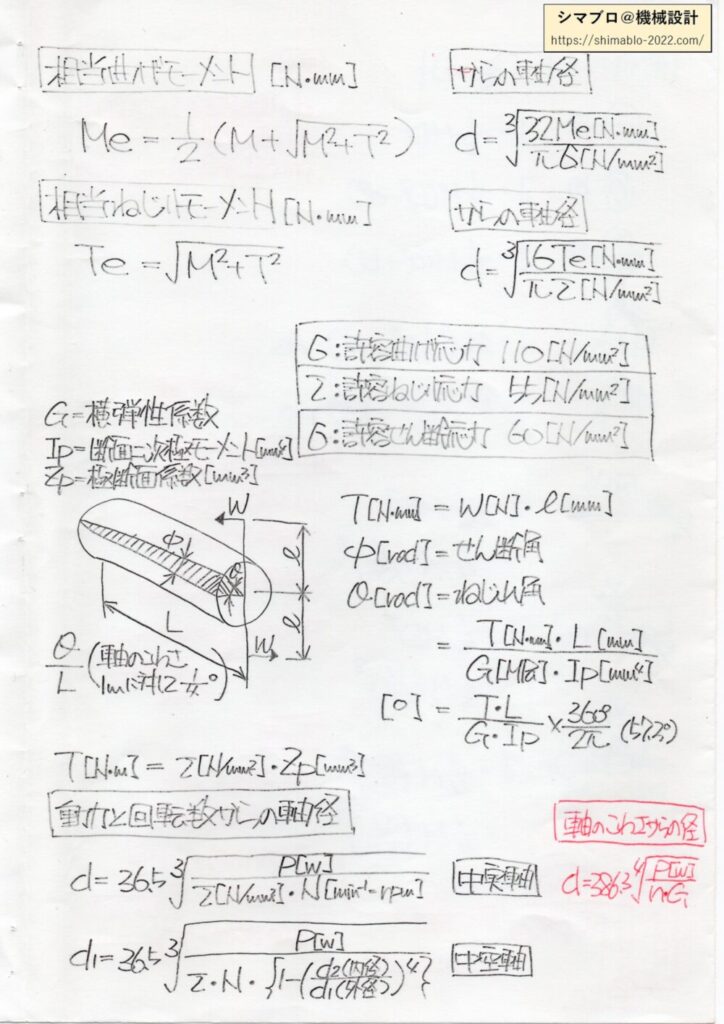 シマブロ@機械設計
https://shimablo-2022.com/
相当曲げモーメント [N・mm]
からの軸径
Me = 1/2 (M+√M²+T²)
d = ³√32Me[N・mm]/πσ[N/mm²]
相当ねじりモーメント [N・mm]
からの軸径
Te = √M²+T²
d = ³√16Te[N・mm]/πτ[N/mm²]
σ:許容曲げ応力 110[N/mm²]
τ:許容ねじり応力 55[N/mm²]
σ:許容せん断応力 60[N/mm²]
G=横弾性係数
Ip=断面二次極モーメント[mm⁴]
Zp=極断面係数[mm³]
W
Φ
θ
l
l
L
W
θ/L (軸のこわさ 1mに対して1/4°)
T[N・mm] = W[N]・l[mm]
Φ[rad]=せん断角
θ[rad]=ねじれ角
= T[N・mm]・L[mm]/G[MPa]・Ip[mm⁴]
[°] = T・L/G・Ip × 360°/2π (57.3°)
T[N・m] = τ[N/mm²]・Zp[mm³]
動力と回転数からの軸径
軸のこわさからの径
d = 36.5 ³√P[W]/τ[N/mm²]・N[min⁻¹=rpm]
中実軸
d=386.3 ⁴√P[W]/n・G
d1 = 36.5 ³√P[W]/τ・N・{1-(d2(内径)/d1(外径))⁴}
中空軸